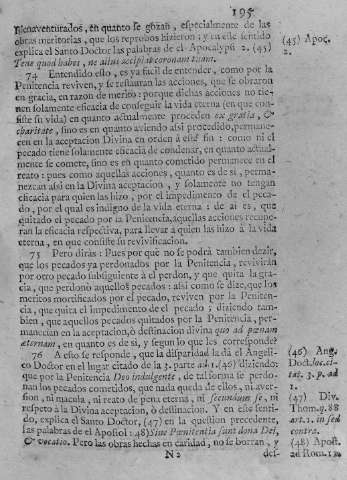 195
Bienaventurados, en quanto se gozan, especialmente de las
obras meritorias, que los reprobos hizieron; y en este sentido
explica el Santo Doctor las palabras de el Apocalypsi 2. (45)
Tene quod habes, ne alius accipiat coronam tuam.
(45) Apoc.
2.
74 Entendido esto, es ya facil de entender, como por la
Penitencia reviven, y se restauran las acciones, que se obraron
en gracia, en razon de merito: porque dichas acciones no tie-
nen solamente eficacia de conseguir la vida eterna (en que con-
siste su vida) en quanto actualmente proceden ex gratia, &
charitate, sino es en quanto aviendo assi procedido, permane-
cen en la aceptacion Divina en orden à este fin: como ni el
pecado tiene solamente eficacia de condenar, en quanto actual-
mente se comete, sino es en quanto cometido permanece en el
reato: pues como aquellas acciones, quanto es de si, perma-
nezcan assi en la Divina aceptacion, y solamente no tengan
eficacia para quien las hizo, por el impedimento de el peca-
do, por el qual es indigno de la vida eterna: de ai es, que
quitado el pecado por la Penitencia, aquellas acciones recupe-
ran la eficacia respectiva, para llevar à quien las hizo à la vida
eterna, en que consiste su revivificacion.
75 Pero diràs: Pues por què no se podrà tambien dezir,
que los pecados yà perdonados por la Penitencia, revivirán
por otro pecado subsiguiente à el perdon, y que quita la gra-
cia, que perdonò aquellos pecados: assi como se dize, que los
meritos mortificados por el pecado, reviven por la Peniten-
cia, que quita el impedimento de el pecado; diziendo tam-
bien, que aquellos pecados quitados por la Penitencia, per-
manecen en la aceptacion, ò destinacion divina quo ad pœnam
æternam, en quanto es de si, y segun lo que les corresponde?
76 A esto se responde, que la disparidad la dà el Angeli-
co Doctor en el lugar citado de la 3. parte ad 1. (46) diziendo:
que por la Penitencia Deo indulgente, de tal forma se perdo-
nan los pecados cometidos, que nada queda de ellos, ni aver-
sion, ni macula, ni reato de pena eterna, ni secundum se, ni
respeto à la Divina aceptacion, ò destinacion. Y en este senti-
do, explica el Santo Doctor, (47) en la question precedente,
las palabras de el Apostol: (48) Sine Pœnitentia sunt dona Dei,
& vocatio. Pero las obras hechas en caridad, no se borran, y
(46) Ang.
Doct. loc. ci-
tat. 3. p. ad
1.
(47) Div.
Thom. q. 88
art. 1. in sed
contra.
(48) Apost.
ad Rom. 11.
N 2
des-